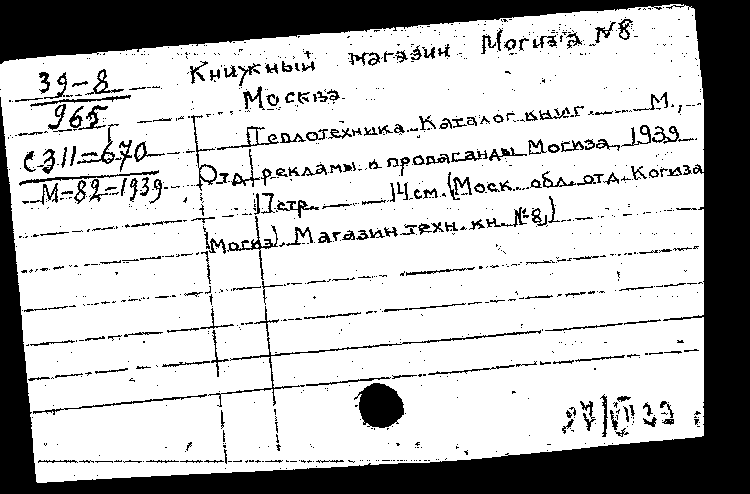 39-8
965
С311=670
М-82-1939
Книжный магазин Могиз'а №8
Москва
Теплотехника. Каталог книг. М.,
Отд. рекламы и пропаганды Могиза, 1939
17 стр. 14 см. (Моск. обл. отд. Когиза
(Могиз). Магазин техн. кн. №8,)
27/VI 39